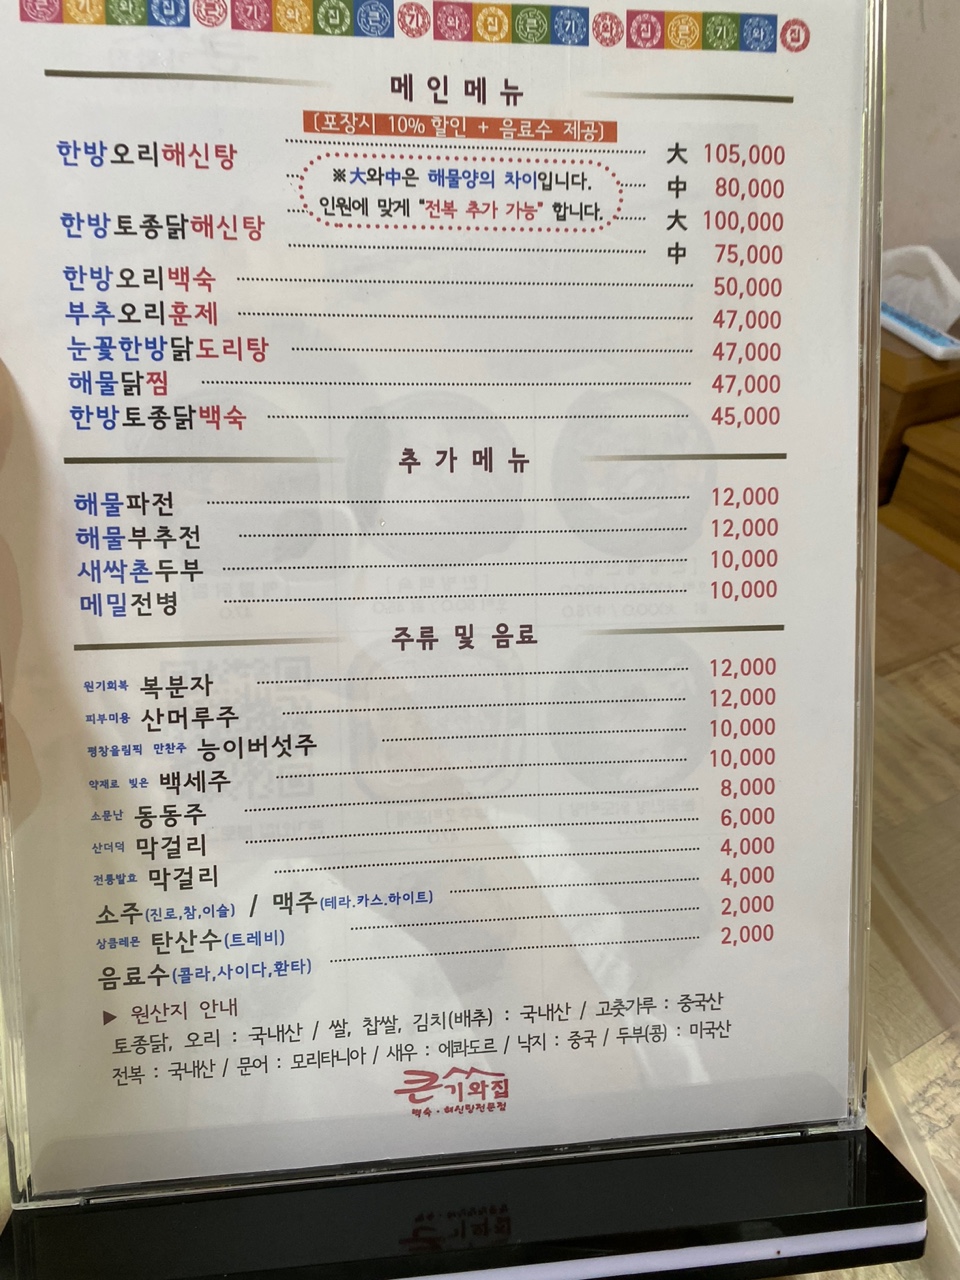 큰 기 와 집 큰 기 와 집 큰 기 와 집 큰 기 와 집 큰 기 와 집
메인메뉴
[포장시 10% 할인 + 음료수 제공]
한방오리해신탕 大 105,000
※大와中은 해물양의 차이입니다.
中 80,000
인원에 맞게 "전복 추가 가능" 합니다.
한방토종닭해신탕 大 100,000
中 75,000
한방오리백숙 50,000
부추오리훈제 47,000
눈꽃한방닭도리탕 47,000
해물닭찜 47,000
한방토종닭백숙 45,000
추가메뉴
해물파전 12,000
해물부추전 12,000
새싹촌두부 10,000
메밀전병 10,000
주류 및 음료
원기회복 복분자 12,000
피부미용 산머루주 12,000
평창올림픽 만찬주 능이버섯주 10,000
약재로 빚은 백세주 10,000
소문난 동동주 8,000
산더덕 막걸리 6,000
전통발효 막걸리 4,000
소주(진로,참,이슬) / 맥주(테라.카스.하이트) 4,000
상큼레몬 탄산수(트레비) 2,000
음료수(콜라,사이다,환타) 2,000
▶ 원산지 안내
토종닭, 오리 : 국내산 / 쌀, 찹쌀, 김치(배추) : 국내산 / 고춧가루 : 중국산
전복 : 국내산 / 문어 : 모리타니아 / 새우 : 에콰도르 / 낙지 : 중국 / 두부(콩) : 미국산
큰기와집
백숙·해신탕전문점